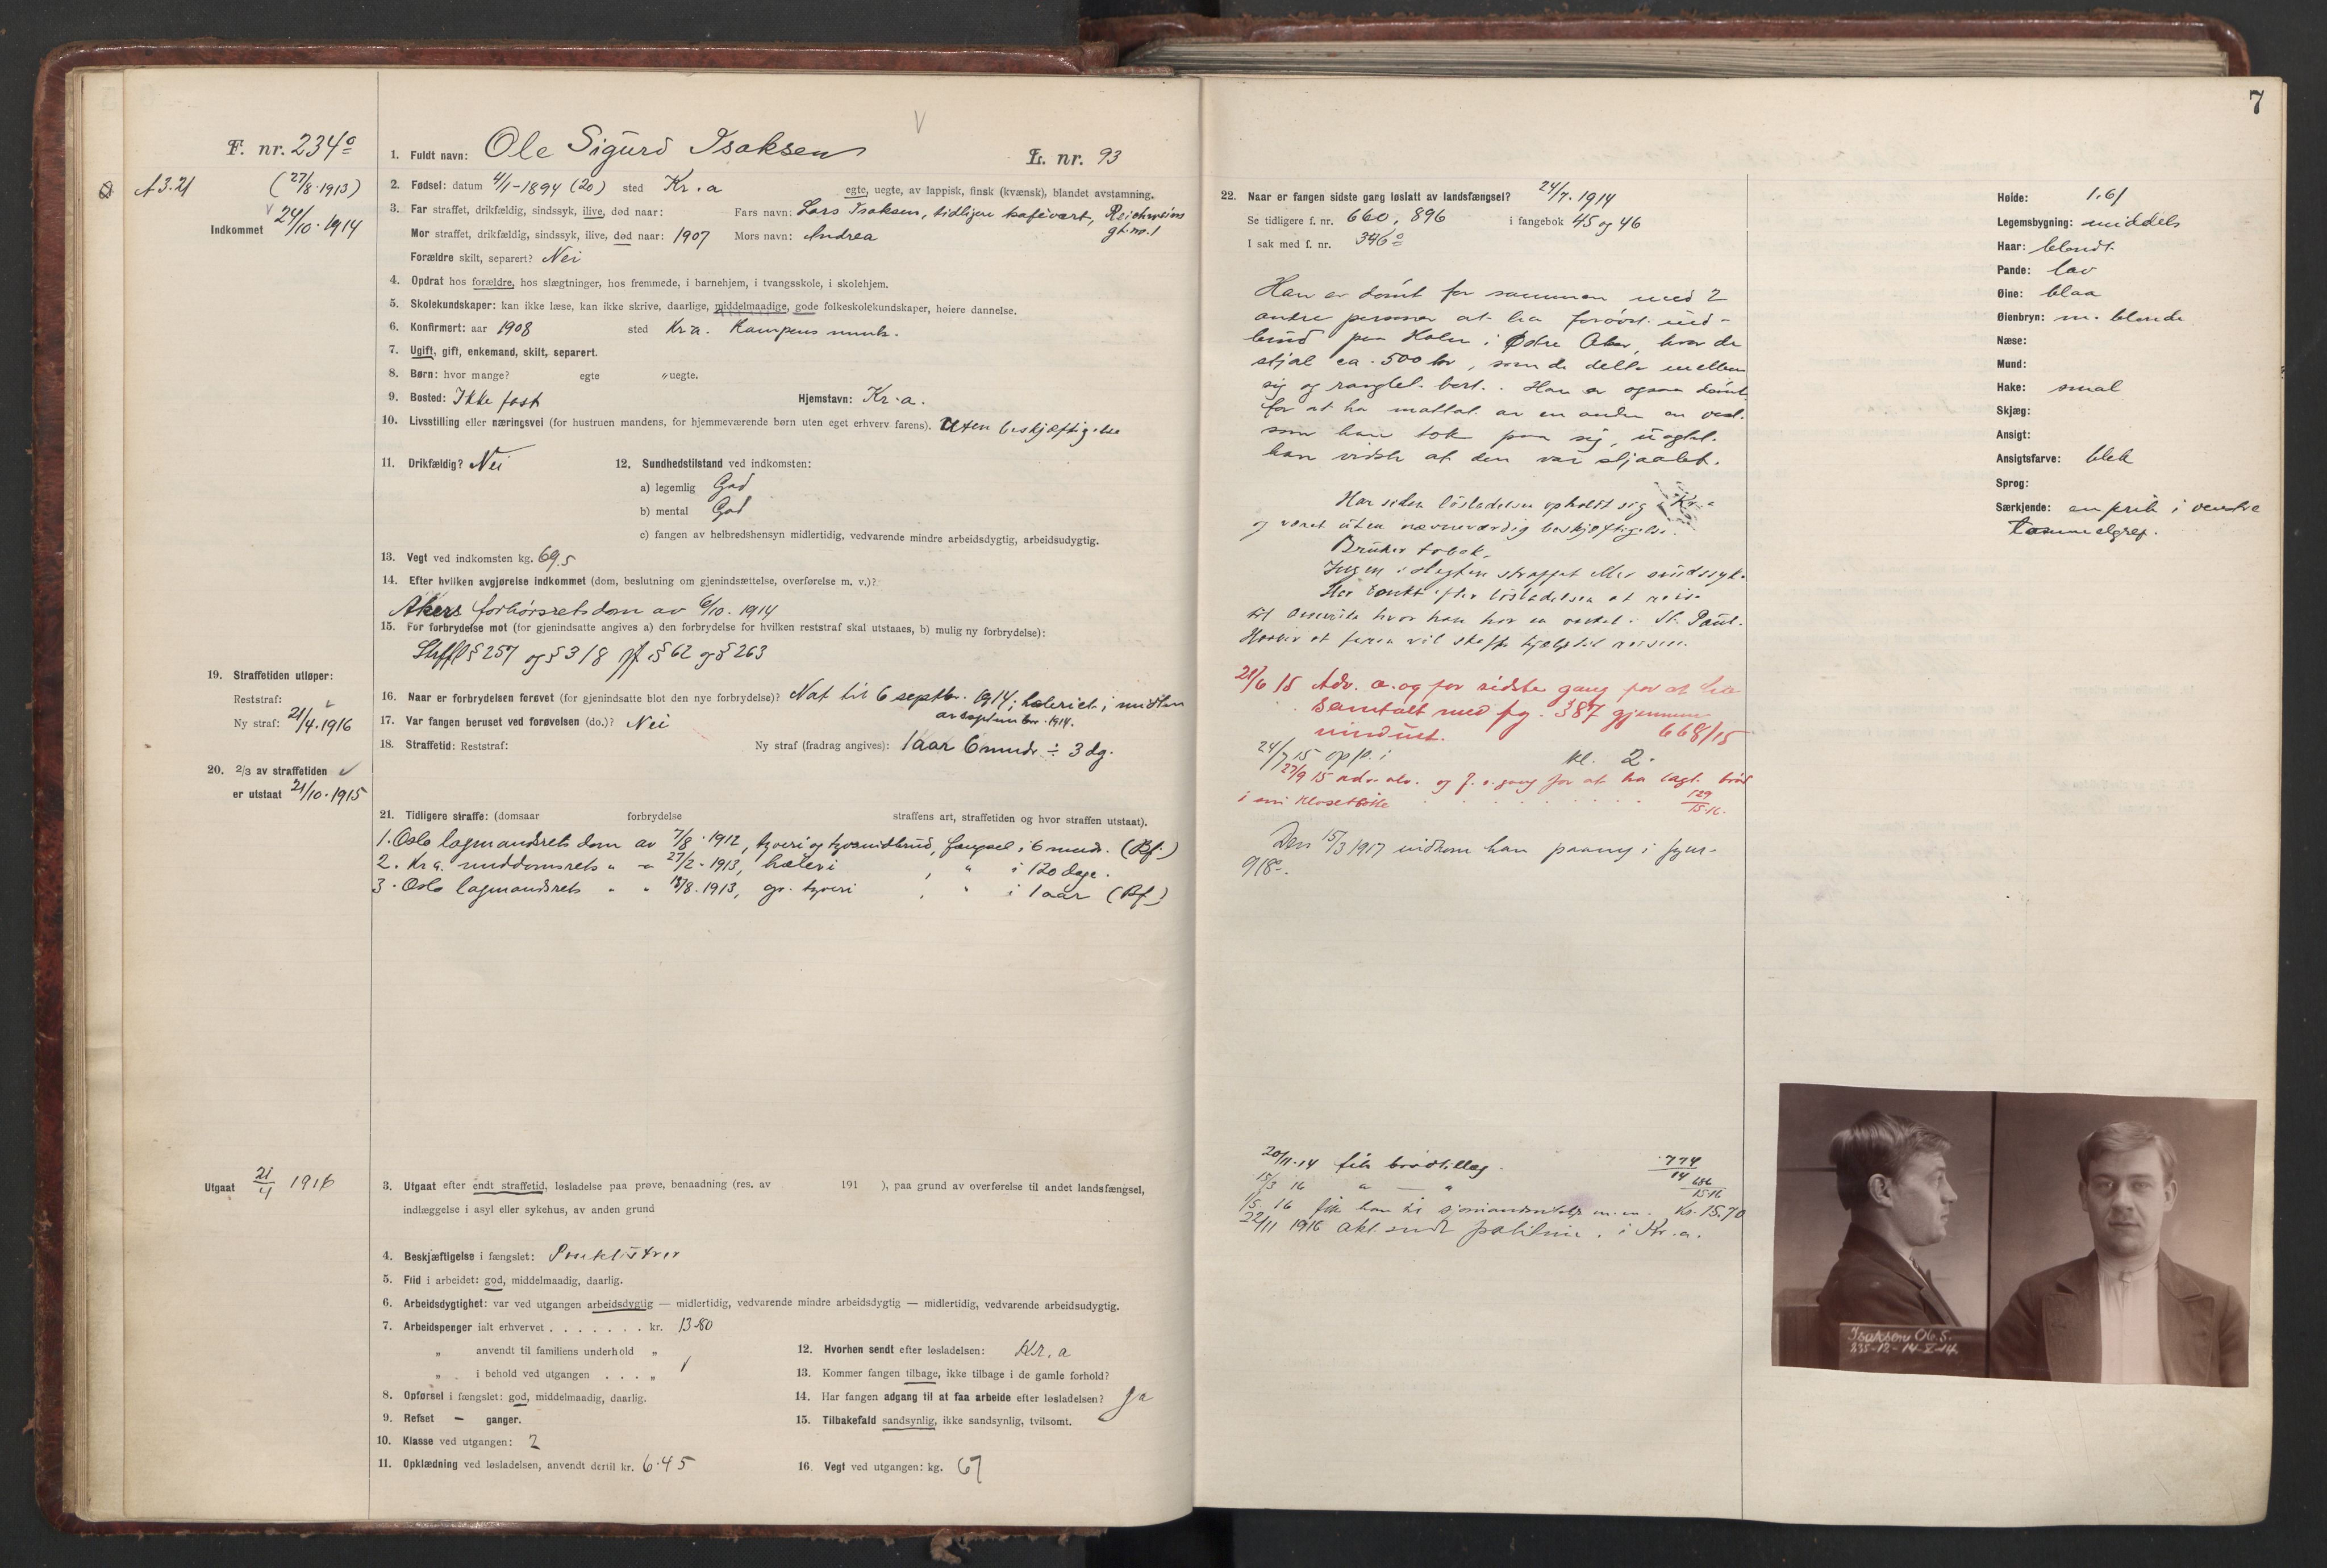 7
F. nr. 234º
A 3.21
(27/8.1913)
Indkommet 24/10.1914
1. Fuldt navn: Ole Sigurd Isaksen
L. nr. 93
2. Fødsel: datum 4/1-1894 (20) sted Kr.a
egte, uegte, av lappisk, finsk (kvænsk), blandet avstamning.
3. Far straffet, drikfældig, sindssyk, ilive, død naar: Fars navn: Lars Isaksen, tidligere kafévært, Reichweins
gt. no. 1
Mor straffet, drikfældig, sindssyk, ilive, død naar: 1907 Mors navn: Andrea
Forældre skilt, separert? Nei
4. Opdrat hos forældre, hos slægtninger, hos fremmede, i barnehjem, i tvangsskole, i skolehjem.
5. Skolekundskaper: kan ikke læse, kan ikke skrive, daarlige, middelmaadige, gode folkeskolekundskaper, høiere dannelse.
6. Konfirmert: aar 1908 sted Kr.a. Kampens menh.
7. Ugift, gift, enkemand, skilt, separert.
8. Børn: hvor mange? egte " uegte.
9. Bosted: Ikke fast Hjemstavn: Kr.a.
10. Livsstilling eller næringsvei (for hustruen mandens, for hjemmeværende børn uten eget erhverv farens). Uten beskjæftigelse
11. Drikfældig? Nei
12. Sundhedstilstand ved indkomsten:
a) legemlig God
b) mental God
c) fangen av helbredshensyn midlertidig, vedvarende mindre arbeidsdygtig, arbeidsudygtig.
13. Vegt ved indkomsten kg. 69.5
14. Efter hvilken avgjørelse indkommet (dom, beslutning om gjenindsættelse, overførelse m. v.)?
Akers forhørsrets dom av 6/10. 1914
15. For forbrydelse mot (for gjenindsatte angives a) den forbrydelse for hvilken reststraf skal utstaaes, b) mulig ny forbrydelse):
Strfl § 257 og § 318 jf. § 62 og § 263
16. Naar er forbrydelsen forøvet (for gjenindsatte blot den nye forbrydelse)? Nat til 6 septbr. 1914; hæleriet i midten
av september 1914.
17. Var fangen beruset ved forøvelsen (do.)? Nei
18. Straffetid: Reststraf: Ny straf (fradrag angives): 1 aar 6 mndr ÷ 3 dg.
19. Straffetiden utløper:
Reststraf:
Ny straf: 21/4.1916
20. 2/3 av straffetiden
er utstaat 21/10.1915
21. Tidligere straffe: (domsaar forbrydelse straffens art, straffetiden og hvor straffen utstaat).
1. Oslo lagmandsrets dom av 7/8.1912, tyveri og tyvsindbrud, fængsel i 6 mndr. (Bf.)
2. Kr.a. meddomsrets " " 27/2-1913, hæleri , " i 120 dage.
3. Oslo lagmandsrets " " 18/8.1913, gr. tyveri , " i 1 aar (Bf.)
Utgaat 21/4 1916
3. Utgaat efter endt straffetid, løsladelse paa prøve, benaadning (res. av 191 ), paa grund av overførelse til andet landsfængsel,
indlæggelse i asyl eller sykehus, av anden grund
4. Beskjæftigelse i fængslet:
5. Flid i arbeidet: god, middelmaadig, daarlig.
6. Arbeidsdygtighet: var ved utgangen arbeidsdygtig — midlertidig, vedvarende mindre arbeidsdygtig — midlertidig, vedvarende arbeidsudygtig.
7. Arbeidspenger ialt erhvervet . . . . . . . kr. 13.80
" anvendt til familiens underhold "
" i behold ved utgangen . . . "
8. Opførsel i fængslet: god, middelmaadig, daarlig.
9. Refset – ganger.
10. Klasse ved utgangen: 2
11. Opklædning ved løsladelsen, anvendt dertil kr. 6.45
12. Hvorhen sendt efter løsladelsen: Kr.a
13. Kommer fangen tilbage, ikke tilbage i de gamle forhold?
14. Har fangen adgang til at faa arbeide efter løsladelsen? Ja
15. Tilbakefald sandsynlig, ikke sandsynlig, tvilsomt.
16. Vegt ved utgangen: kg. 67
22. Naar er fangen sidste gang løslatt av landsfængsel? 24/7.1914
Se tidligere f. nr. 660, 896 i fangebok 45 og 46
I sak med f. nr. 346º
Han er dømt for sammen med 2
andre personer at ha forøvet ind-
brud paa Holen i Østre Aker, hvor de
stjal ca. 500 kr, som de delte mellem
sig og ranglet bort. Han er ogsaa dømt
for at ha mottat av en anden en vest
som han tok paa sig, uagtet
han vidste at den var stjaalet.
Har siden løsladelsen opholdt sig i Kr.a
og været uten nævneværdig beskjæftigelse.
Bruker tobak.
Ingen i slegten straffet eller sindssyk.
Har tænkt efter løsladelsen at reise
til Amerika hvor han har en onkel i St. Paul.
Haaber at faren vil skaffe hjælp til reisen.
21/6 15 Adv. a. og for sidste gang for at ha
samtalt med fg. 387 gjennem
vinduet. 668/15
24/7 15 opfl. i kl. 2.
27/9 15 adv. alv. og f. s. gang for at ha lagt brød
i sin klosetbøtte 129/15-16.
Den 15/3 1917 indkom han paany i fgnr.
918º.
20/11-14 fik brødtillæg. 774/14
15/3 16 " — " 686/15-16
1/5. 16 fik han m.m. Kr. 15.70
22/11 1916 akt. sendt politiet i Kr.a.
Høide: 1.61
Legemsbygning: middels
Haar: blondt
Pande: lav
Øine: blaa
Øienbryn: m. blonde
Næse:
Mund:
Hake: smal
Skjæg:
Ansigt:
Ansigtsfarve: blek
Sprog:
Særkjende: en prik i venstre
tommelgrep.
Isaksen Ole S.
235-12-14-X-14